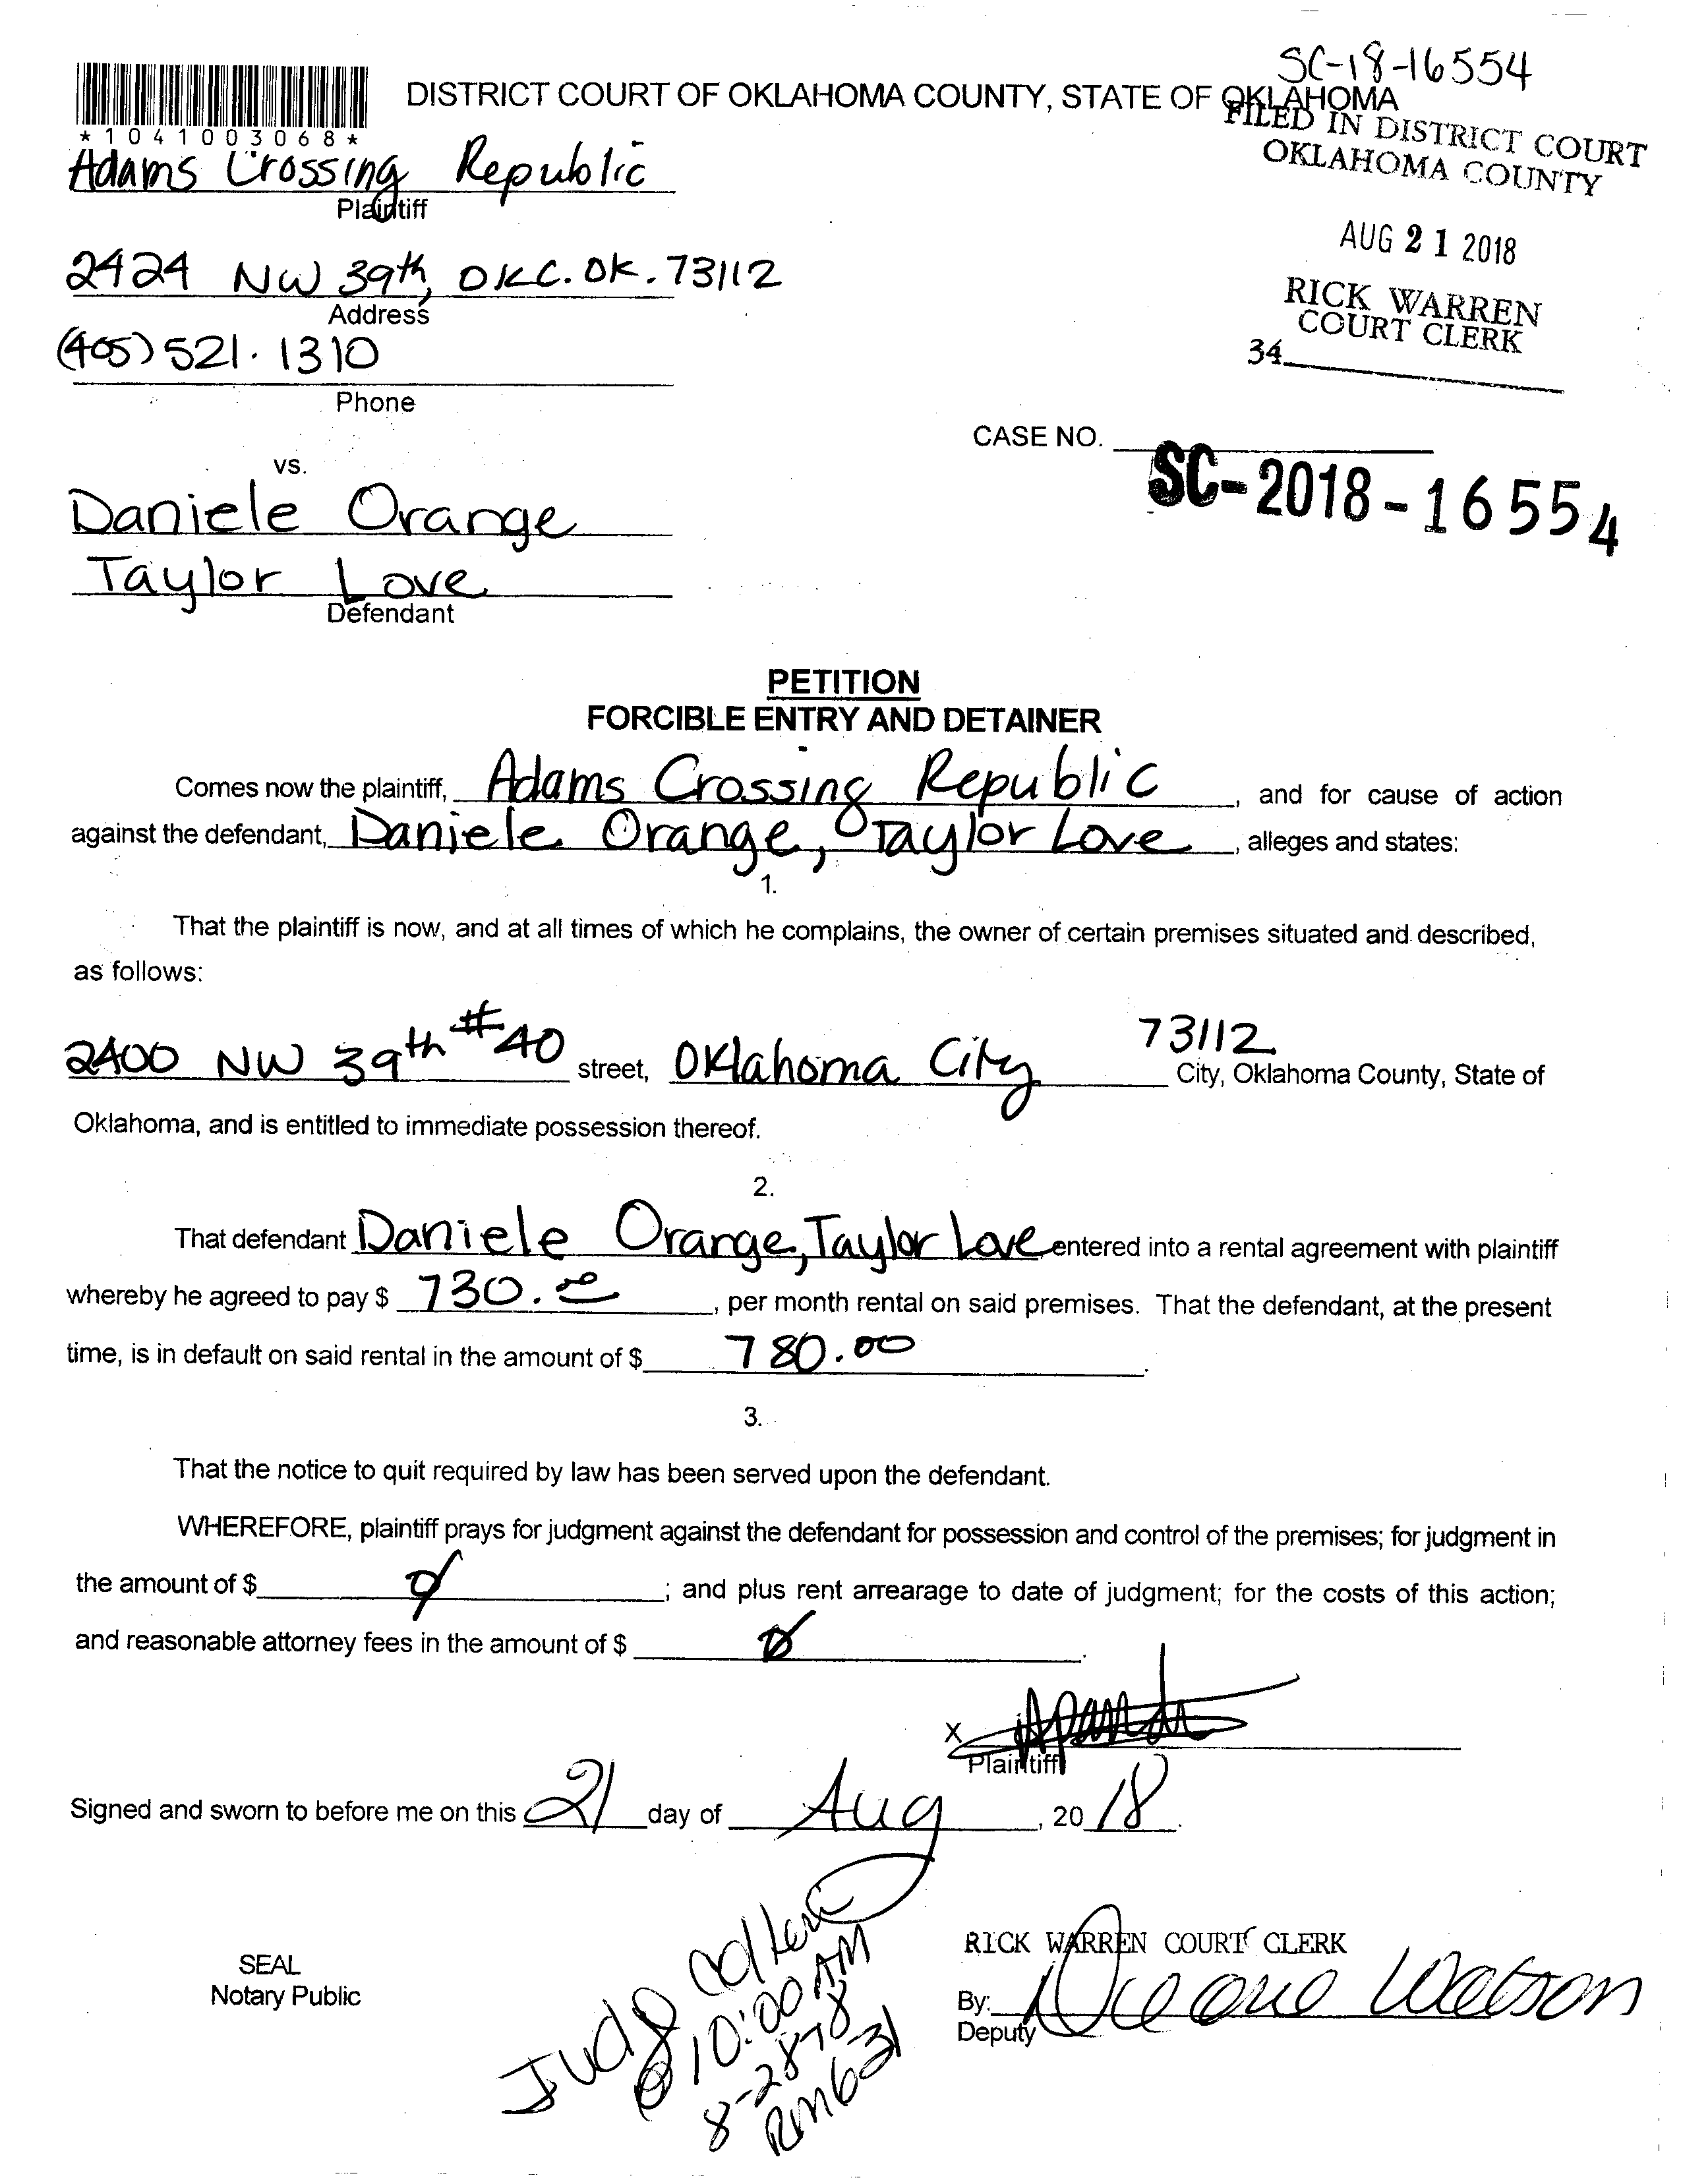 SC-18-16554
DISTRICT COURT OF OKLAHOMA COUNTY, STATE OF OKLAHOMA
FILED IN DISTRICT COURT
OKLAHOMA COUNTY
*1041003068*
Adams Crossing Republic
Plaintiff
AUG 21 2018
2424 NW 39th, OKC. OK. 73112
Address
RICK WARREN
COURT CLERK
(405) 521. 1310
34
Phone
CASE NO.
SC-2018-16554
vs.
Daniele Orange
Taylor Love
Defendant
PETITION
FORCIBLE ENTRY AND DETAINER
Comes now the plaintiff, Adams Crossing Republic, and for cause of action
against the defendant, Daniele Orange, Taylor Love, alleges and states:
1.
That the plaintiff is now, and at all times of which he complains, the owner of certain premises situated and described,
as follows:
2400 NW 39th #40 street, Oklahoma City 73112 City, Oklahoma County, State of
Oklahoma, and is entitled to immediate possession thereof.
2.
That defendant Daniele Orange, Taylor Love entered into a rental agreement with plaintiff
whereby he agreed to pay $ 730.00, per month rental on said premises. That the defendant, at the present
time, is in default on said rental in the amount of $ 780.00.
3.
That the notice to quit required by law has been served upon the defendant.
WHEREFORE, plaintiff prays for judgment against the defendant for possession and control of the premises; for judgment in
the amount of $ Ø; and plus rent arrearage to date of judgment; for the costs of this action;
and reasonable attorney fees in the amount of $ Ø.
X
Plaintiff
Signed and sworn to before me on this 21 day of Aug, 2018.
SEAL
Notary Public
Judg
10:00 AM
8-28-18
RM 631
RICK WARREN COURT CLERK
By: Watson
Deputy